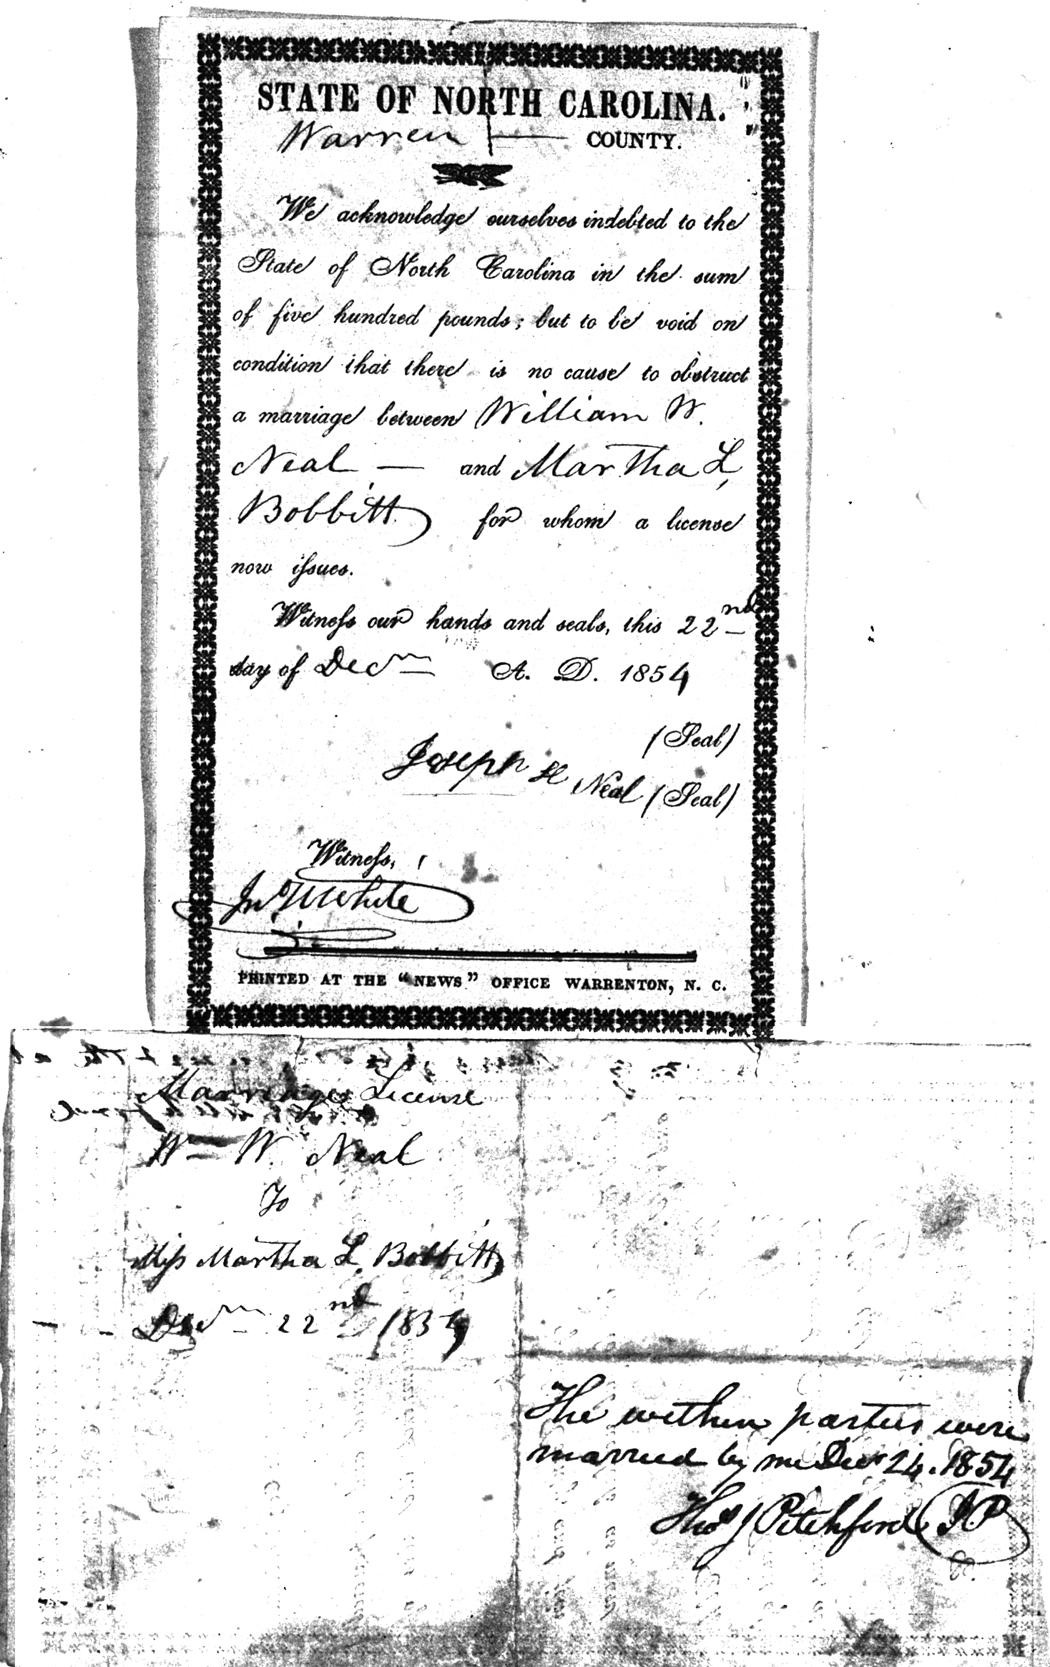 STATE OF NORTH CAROLINA.
Warren COUNTY.
We acknowledge ourselves indebted to the
State of North Carolina in the sum
of five hundred pounds; but to be void on
condition that there is no cause to obstruct
a marriage between William W.
Neal — and Martha L.
Bobbitt for whom a license
now issues.
Witness our hands and seals, this 22nd
day of Decm A. D. 1854
(Seal)
Joseph H Neal (Seal)
Witness,
Jno White
PRINTED AT THE "NEWS" OFFICE WARRENTON, N. C.
Marriage License
Wm W. Neal
To
Miss Martha L. Bobbitt
Decm 22nd 1854
The within parties were
married by me Decr 24. 1854
Thos J Pitchford JP